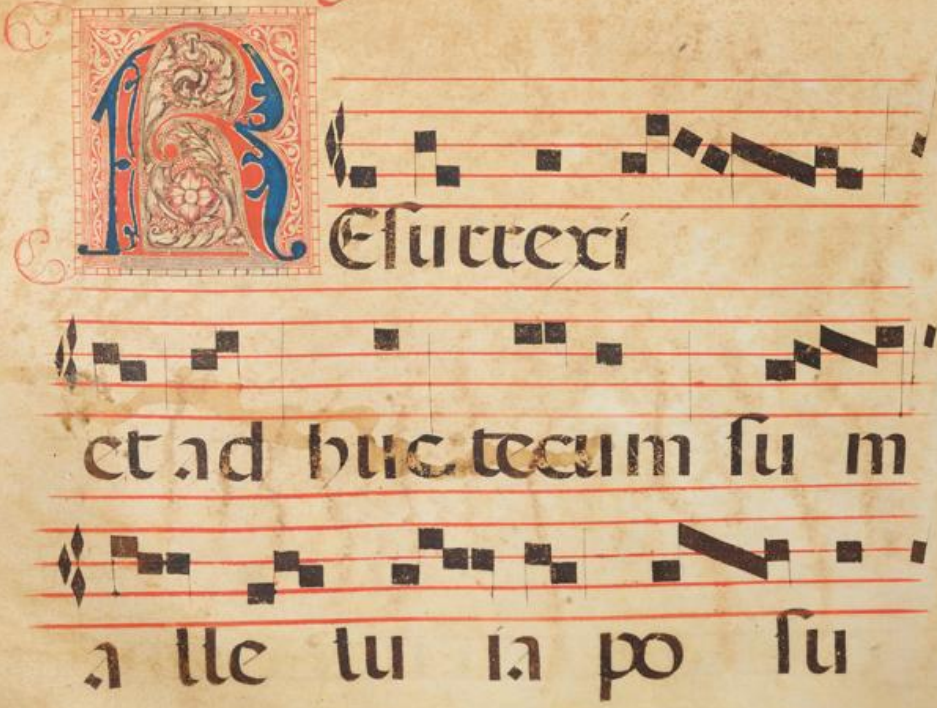 REſurrexi
et ad huc tecum ſu m
a lle lu ia po ſu